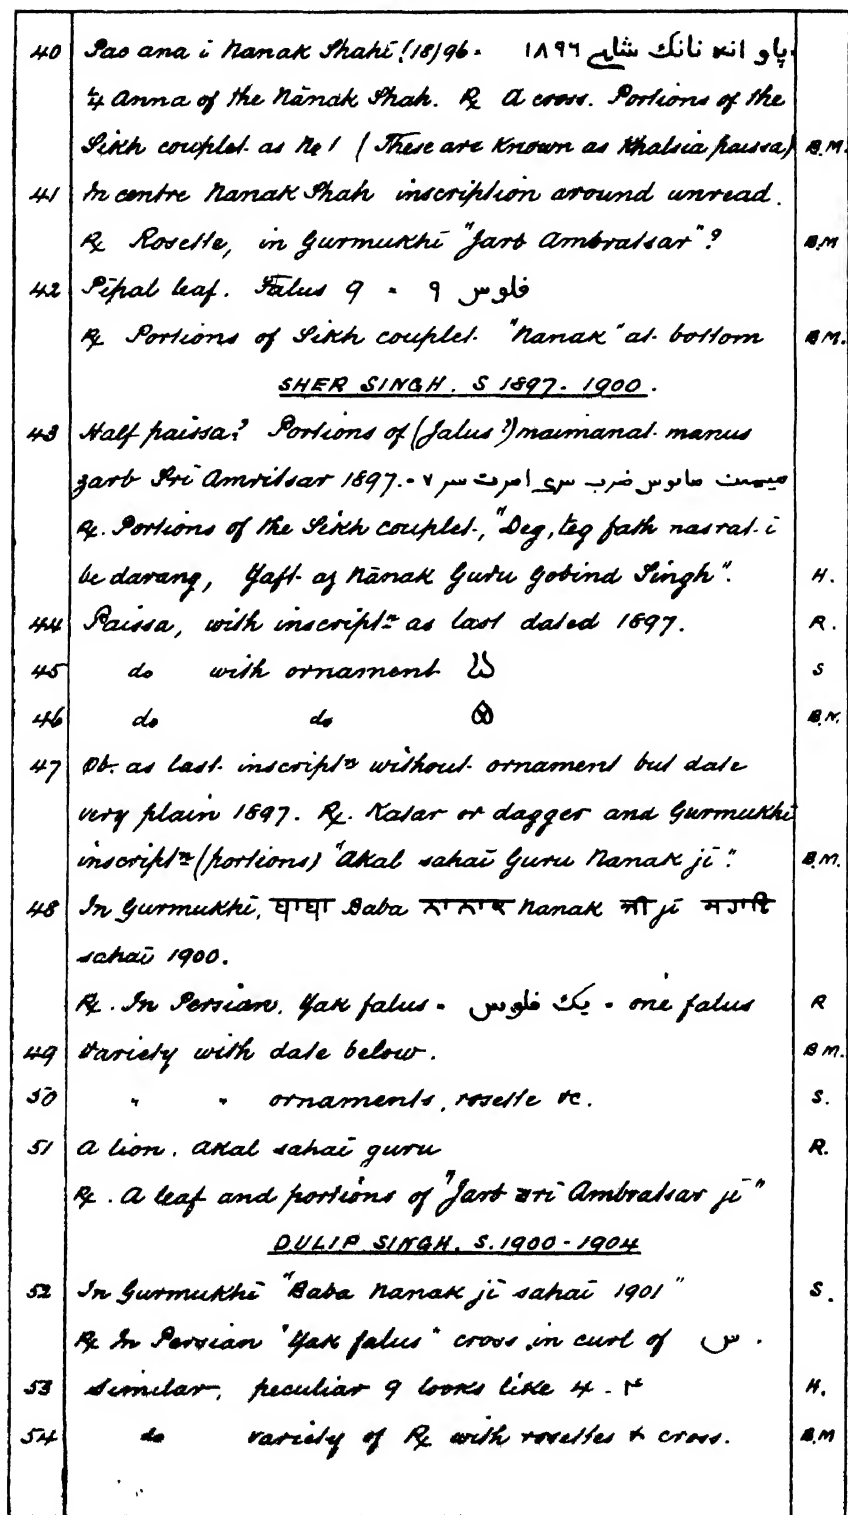 40 Pao ana i Nanak Shahi (18)96 - ١٨٩٦ پاو انه نانك شاہے
¼ Anna of the Nānak Shah. Rx A cross. Portions of the
Sikh couplet as No 1 (These are known as Khalsia paissa) B.M.
41 In centre Nanak Shah inscription around unread.
Rx Rosette, in Gurmukhi "Jarb Ambratsar"? B.M
42 Pipal leaf. Falus 9 - فلوس ٩
Rx Portions of Sikh couplet. "Nanak" at bottom B.M.
SHER SINGH. S 1897-1900.
43 Half paissa? Portions of (Jalus?) maimanat manus
zarb Sri Amritsar 1897. - ميمنت مانوس ضرب سری امرت سر ٧
Rx. Portions of the Sikh couplet, "Deg, teg fath nasrat i
be darang, Yaft az Nānak Guru Gobind Singh". H.
44 Paissa, with inscriptn as last dated 1897. R.
45 do with ornament S
46 do do B.M.
47 Ob. as last inscriptn without ornament but date
very plain 1897. Rx. Katar or dagger and Gurmukhi
inscriptn (portions) "Akal sahai Guru Nanak ji". B.M.
48 In Gurmukhi, ਬਾਬਾ Baba ਨਾਨਕ Nanak ਜੀ ji ਸਹਾਇ
sahai 1900.
Rx. In Persian. Yak falus - يك فلوس - one falus R
49 Variety with date below. B.M.
50 " " ornaments, rosette &c. S.
51 A lion. Akal sahai guru R.
Rx. A leaf and portions of "Jarb sri Ambratsar ji"
DULIP SINGH. S. 1900-1904
52 In Gurmukhi "Baba Nanak ji sahai 1901" S.
Rx In Persian "Yak falus" cross in curl of س.
53 Similar, peculiar 9 looks like 4 - ۴ H.
54 do variety of Rx with rosettes & cross. B.M